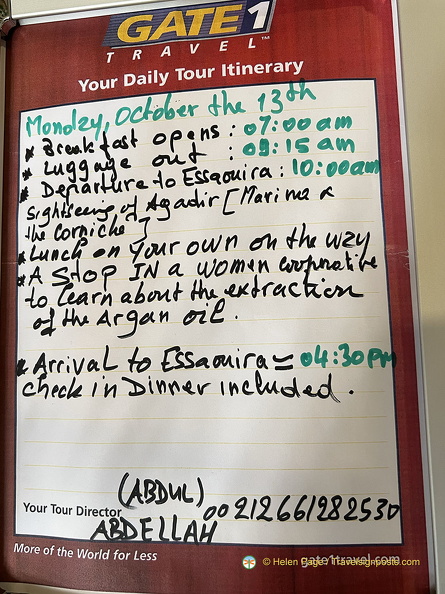 GATE 1
TRAVEL™
Your Daily Tour Itinerary
Monday, October the 13th
* Breakfast opens : 07:00 am
* Luggage out : 09:15 am
* Departure to Essaouira : 10:00am
Sightseeing of Agadir [Marina &
the Corniche]
* Lunch on your own on the way
* A STOP IN a women cooperative
to learn about the extraction
of the Argan oil.
* Arrival to Essaouira = 04:30PM
check in Dinner included.
(ABDUL)
Your Tour Director 00212661282530
ABDELLAH
More of the World for Less
gate1travel.com
© Helen Page / Travelsignposts.com